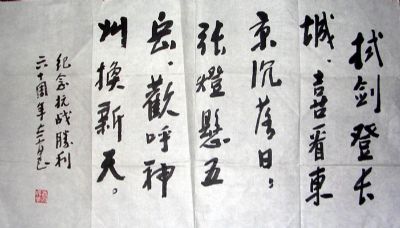 拭剑登长
城，喜看東
京沉落日；
张燈懸五
岳，歡呼神
州換新天。
纪念抗战勝利
六十周年